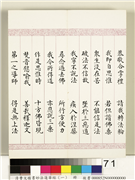 恭敬合掌禮　請我轉法輪
我即自思惟　若但讚佛乘
眾生沒在苦　不能信是法
破法不信故　墜於三惡道
我寧不說法　疾入於涅槃
尋念過去佛　所行方便力
我今所得道　亦應說三乘
作是思惟時　十方佛皆現
梵音慰喻我　善哉釋迦文
第一之導師　得是無上法
71